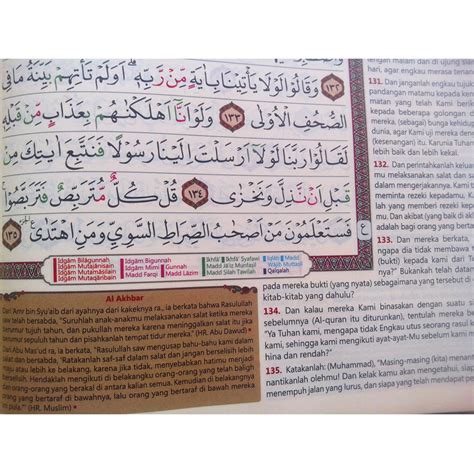 ١٣٢ وَقَالُوا لَوْلَا يَأْتِينَا بِاٰيَةٍ مِّنْ رَّبِّهٖ ۗ اَوَلَمْ تَأْتِهِمْ بَيِّنَةُ مَا فِى
الصُّحُفِ الْاُوْلٰى ١٣٣ وَلَوْ اَنَّآ اَهْلَكْنٰهُمْ بِعَذَابٍ مِّنْ قَبْلِهٖ
لَقَالُوْا رَبَّنَا لَوْلَآ اَرْسَلْتَ اِلَيْنَا رَسُوْلًا فَنَتَّبِعَ اٰيٰتِكَ مِنْ
قَبْلِ اَنْ نَّذِلَّ وَنَخْزٰى ١٣٤ قُلْ كُلٌّ مُّتَرَبِّصٌ فَتَرَبَّصُوْا ۚ
فَسَتَعْلَمُوْنَ مَنْ اَصْحٰبُ الصِّرَاطِ السَّوِيِّ وَمَنِ اهْتَدٰى ١٣٥
ع
Idgâm Bilâgunnah Idgâm Bigunnah Ikhfâ' Ikhfâ' Syafawi Iqlâb Madd Wâjib Muttaṣil
Idgâm Mutamâṡilain Idgâm Mimi Gunnah Madd Jâ'iz Munfaṣil
Idgâm Mutaqâribain Madd Farqi Madd Ṣilah Ṭawîlah Qalqalah
Al Akhbar
Dari Amr bin Syu'aib dari ayahnya dari kakeknya ra., ia berkata bahwa Rasulullah
telah bersabda, "Suruhlah anak-anakmu melaksanakan salat ketika mereka
berumur tujuh tahun, dan pukullah mereka karena meninggalkan salat itu jika
berumur sepuluh tahun dan pisahkanlah tempat tidur mereka." (HR. Abu Dawud)
Dari Abu Mas'ud ra, ia berkata, "Rasulullah saw mengusap bahu-bahu kami dalam
salat dan bersabda, 'Ratakanlah saf-saf kalian dalam salat dan janganlah berselisih
maju atau lebih ke belakang, karena jika tidak, menyebabkan hatimu menjadi
berselisih. Hendaklah mengikuti di belakangku orang-orang yang telah balig
dan orang-orang yang berakal di antara kalian semua. Kemudian di belakangnya
orang yang bertaraf di bawahnya, lalu orang yang bertaraf di bawah mereka
pula.'" (HR. Muslim)
malam dan di ujung siang
agar engkau merasa tenang
131. Dan janganlah engkau tujukan
pandangan matamu kepada ke
matan yang telah Kami berikan
kepada beberapa golongan d
mereka, (sebagai) bunga kehidup
dunia, agar Kami uji mereka den
(kesenangan) itu. Karunia Tuhan
lebih baik dan lebih kekal.
132. Dan perintahkanlah keluar
mu melaksanakan salat dan sab
dalam mengerjakannya. Kami tid
meminta rezeki kepadamu, Kami
yang memberi rezeki kepadam
Dan akibat (yang baik di akhirat)
adalah bagi orang yang bertakwa
133. Dan mereka berkata, "Men
ngapa dia tidak membawa
(bukti) kepada kami dari Tu
nya?" Bukankah telah datang
pada mereka bukti (yang nyata) sebagaimana yang tersebut
kitab-kitab yang dahulu?
134. Dan kalau mereka Kami binasakan dengan suatu
sebelumnya (Al-quran itu diturunkan), tentulah mereka
"Ya Tuhan kami, mengapa tidak Engkau utus seorang rasul
kami, sehingga kami mengikuti ayat-ayat-Mu sebelum kami
hina dan rendah?"
135. Katakanlah: (Muhammad), "Masing-masing (kita) menanti,
nantikanlah olehmu! Dan kelak kamu akan mengetahui, siapa
menempuh jalan yang lurus, dan siapa yang telah mendapat